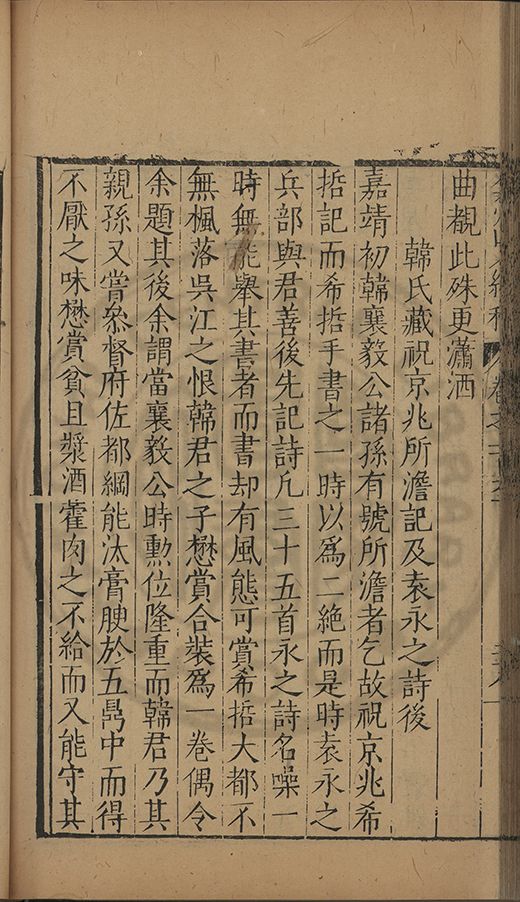 曲覩此殊更瀟洒
韓氏藏祝京兆所澹記及袁永之詩後
嘉靖初韓襄毅公諸孫有號所澹者乞故祝京兆希
哲記而希哲手書之一時以爲二絶而是時袁永之
兵部與君善後先記詩凢三十五首永之詩名噪一
時無能舉其書者而書却有風態可賞希哲大都不
無楓落吳江之恨韓君之子懋賞合裝爲一卷偶令
余題其後余謂當襄毅公時勲位隆重而韓君乃其
親孫又嘗叅督府佐都綱能汰膏腴於五鼎中而得
不厭之味懋賞貧且漿酒藿肉之不給而又能守其